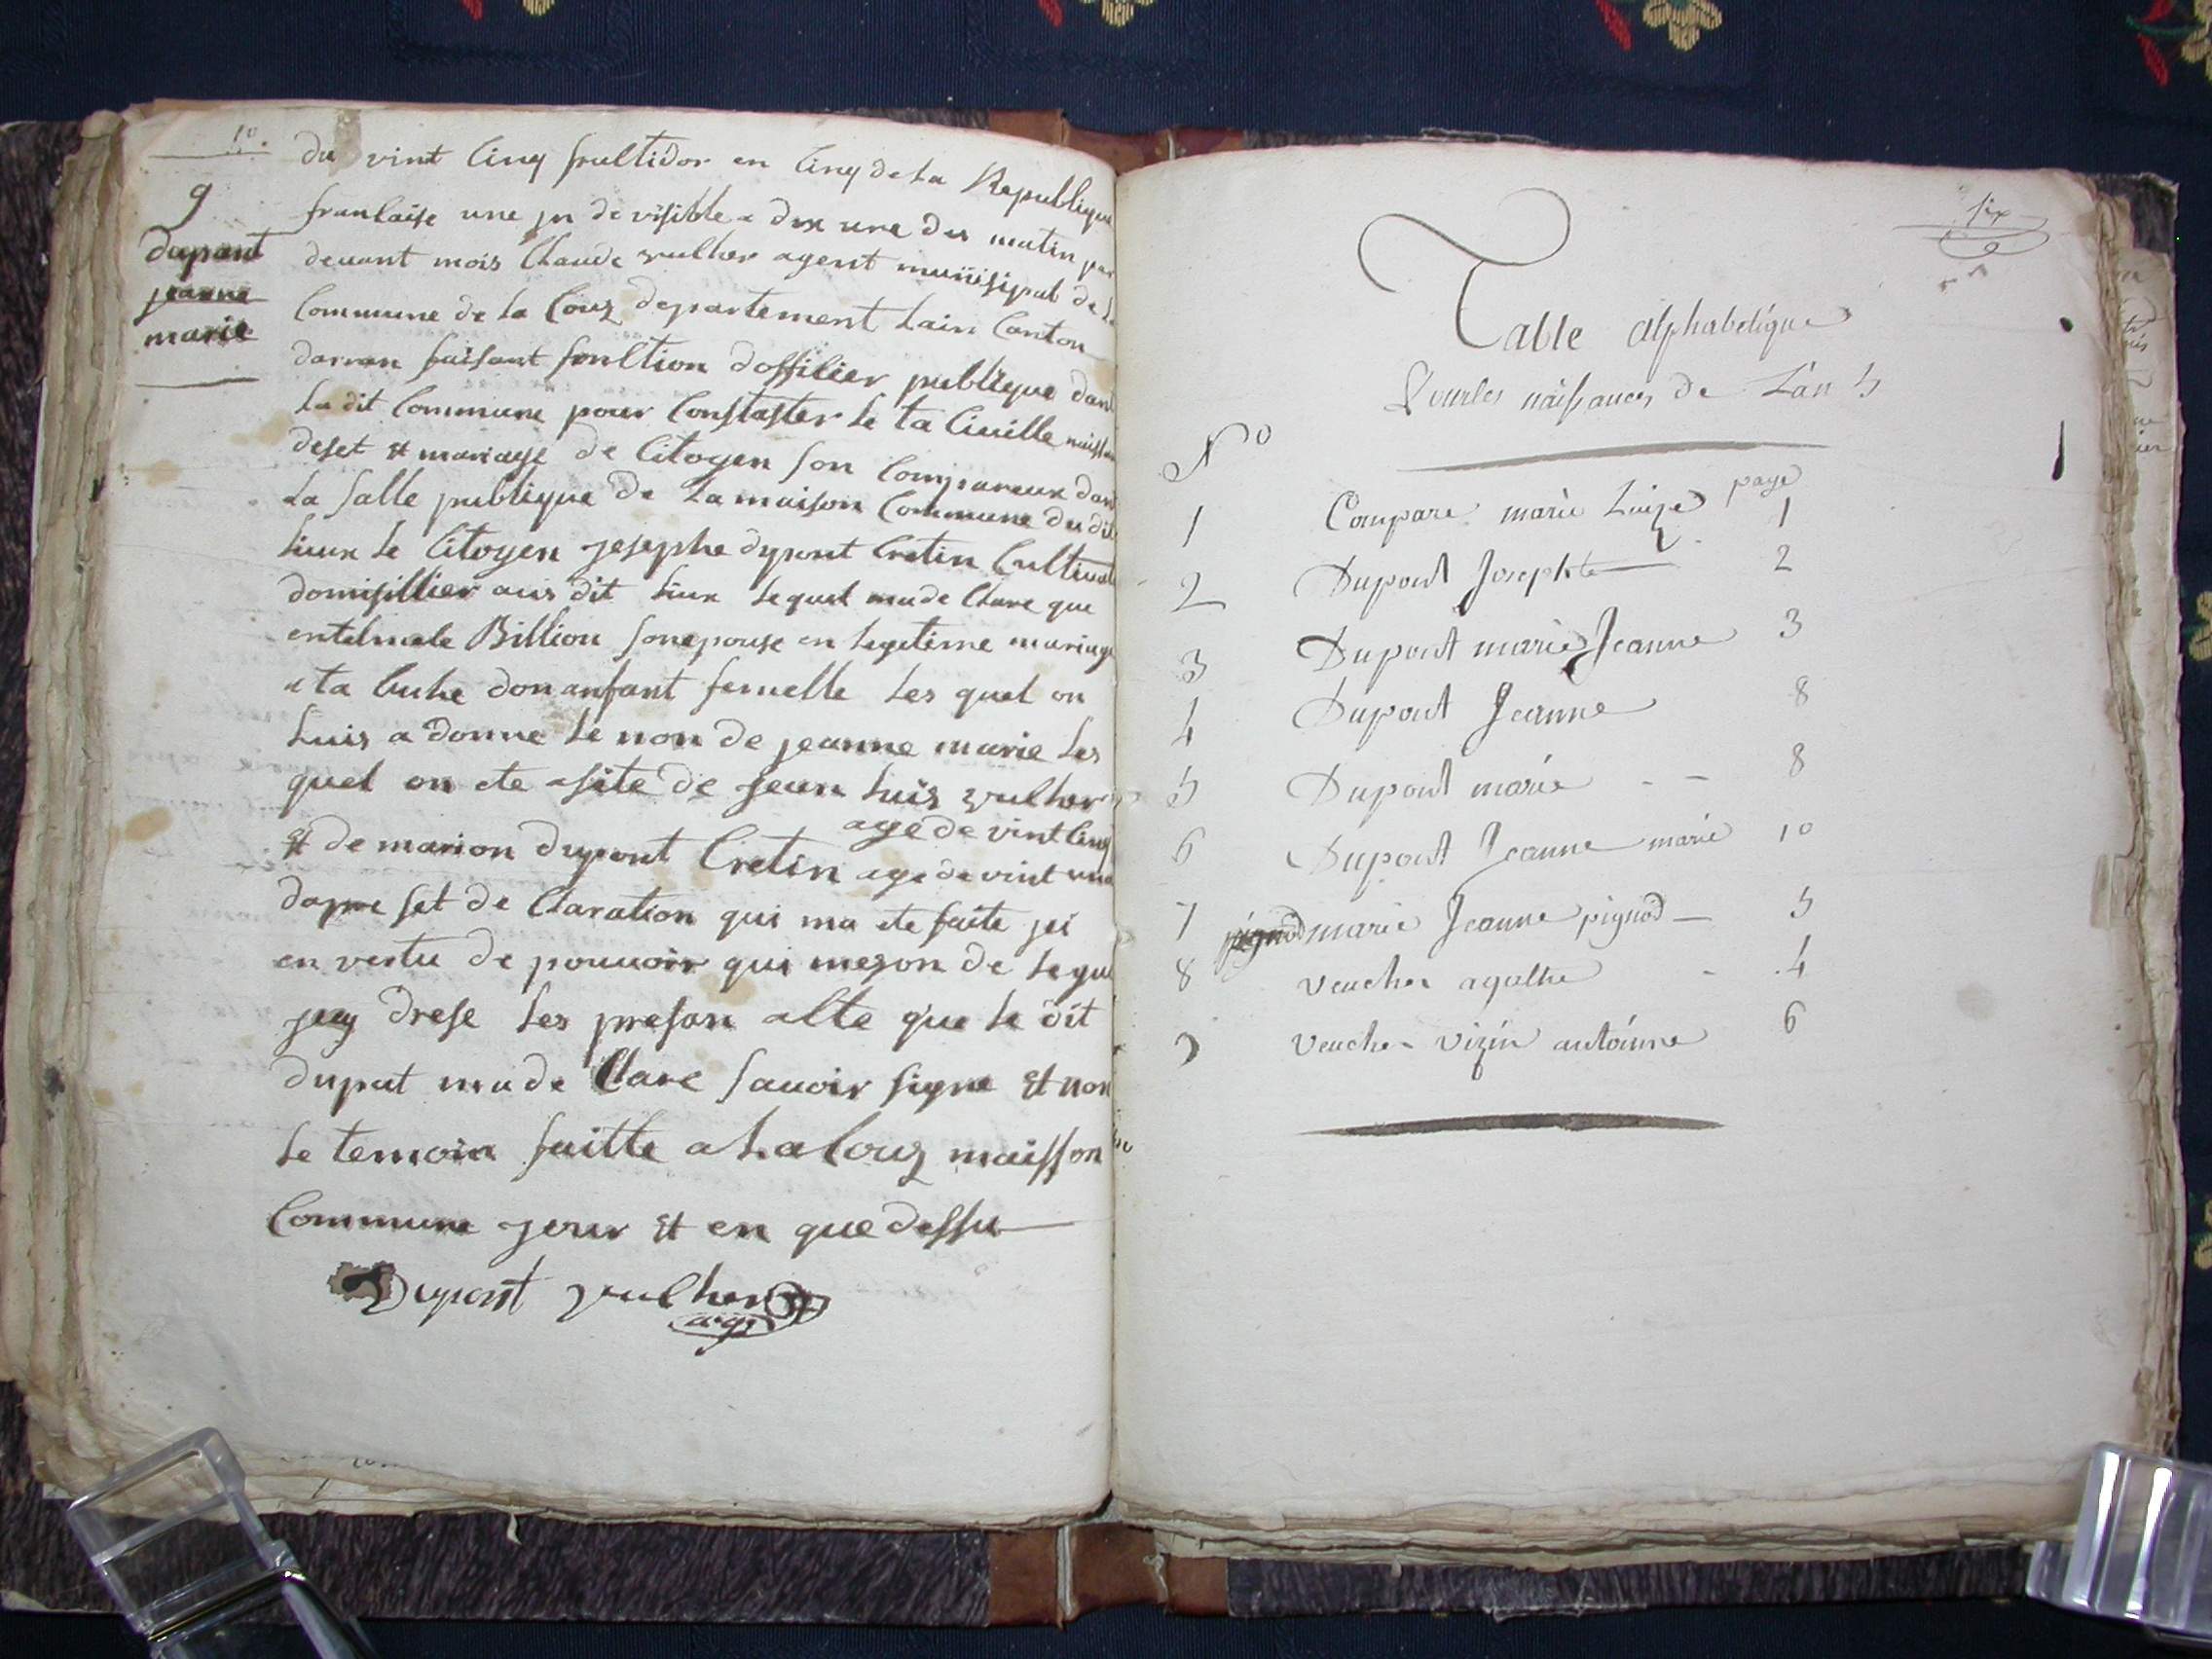 10.
9
dupont
jeanne
marie
du vint cinq fructidor en cinq de la Republique
francaise une jn de visible a dix ure des matin par
devant mois Claude vulher agent munisipal de la
Commune de la Couz departement lain Canton
darnan faisant fonction dofficier publique dant
la dit Commune pour Constaster le ta Civille naissan
deset et mariage de Citoyen son Compareux dant
La salle publique de La maison Commune du dit
lieux le Citoyen josephe dupont Cretin Cultivat
domisillier aus dit lieux lequel made Clare que
entelmele Billion son epouse en legetime mariage
a ta Cuche don anfant femelle les quel on
luis a donne le non de jeanne marie les
quel on ete asite de jean luis vulher
age de vint cinq
et de marion dupont Cretin age de vint une
dapre set de Claration qui ma ete faite jei
en vertu de pouvoir qui mezon de legue
jeuy drese les preson acte que le dit
duput made Clare savoir signe et non
le temoin faitte a La Couz maisson
Commune jour et en que dessu
Dupont vulher
aigt
six
Table alphabetique
Pour les naissances de Lan 5
No
page
1 Compare marie Luize 1
2 Dupont Josephte 2
3 Dupont marie Jeanne 3
4 Dupont Jeanne 8
5 Dupont marie - - 8
6 Dupont Jeanne marie 10
7 pignod marie Jeanne pignod 5
8 veucher agathe - 4
9 Veucher vizin antoinne 6